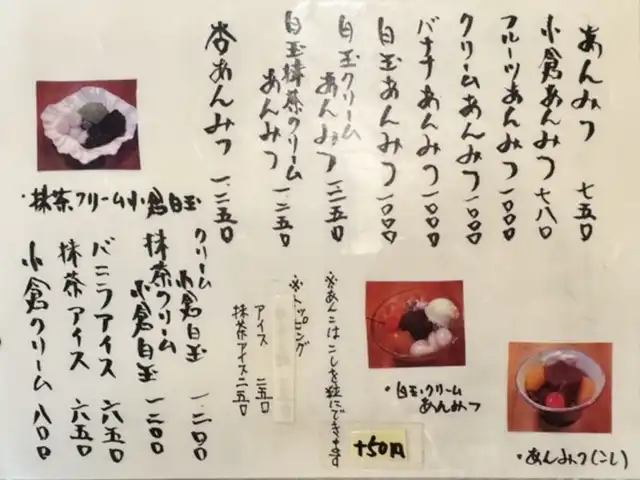 あんみつ 七五〇
小倉あんみつ 七八〇
フルーツあんみつ 一〇〇〇
クリームあんみつ 一〇〇〇
バナナあんみつ 一〇〇〇
白玉あんみつ 一〇〇〇
白玉クリーム
あんみつ 一二五〇
白玉抹茶クリーム
あんみつ 一二五〇
杏あんみつ 一二五〇
・抹茶クリーム小倉白玉
クリーム
小倉白玉 一二〇〇
抹茶クリーム
小倉白玉 一二〇〇
バニラアイス 六五〇
抹茶アイス 六五〇
小倉クリーム 八〇〇
※あんこはこしを粒にできます
+50円
※トッピング
アイス 二五〇
抹茶アイス 二五〇
・白玉クリーム
あんみつ
・あんみつ(こし)